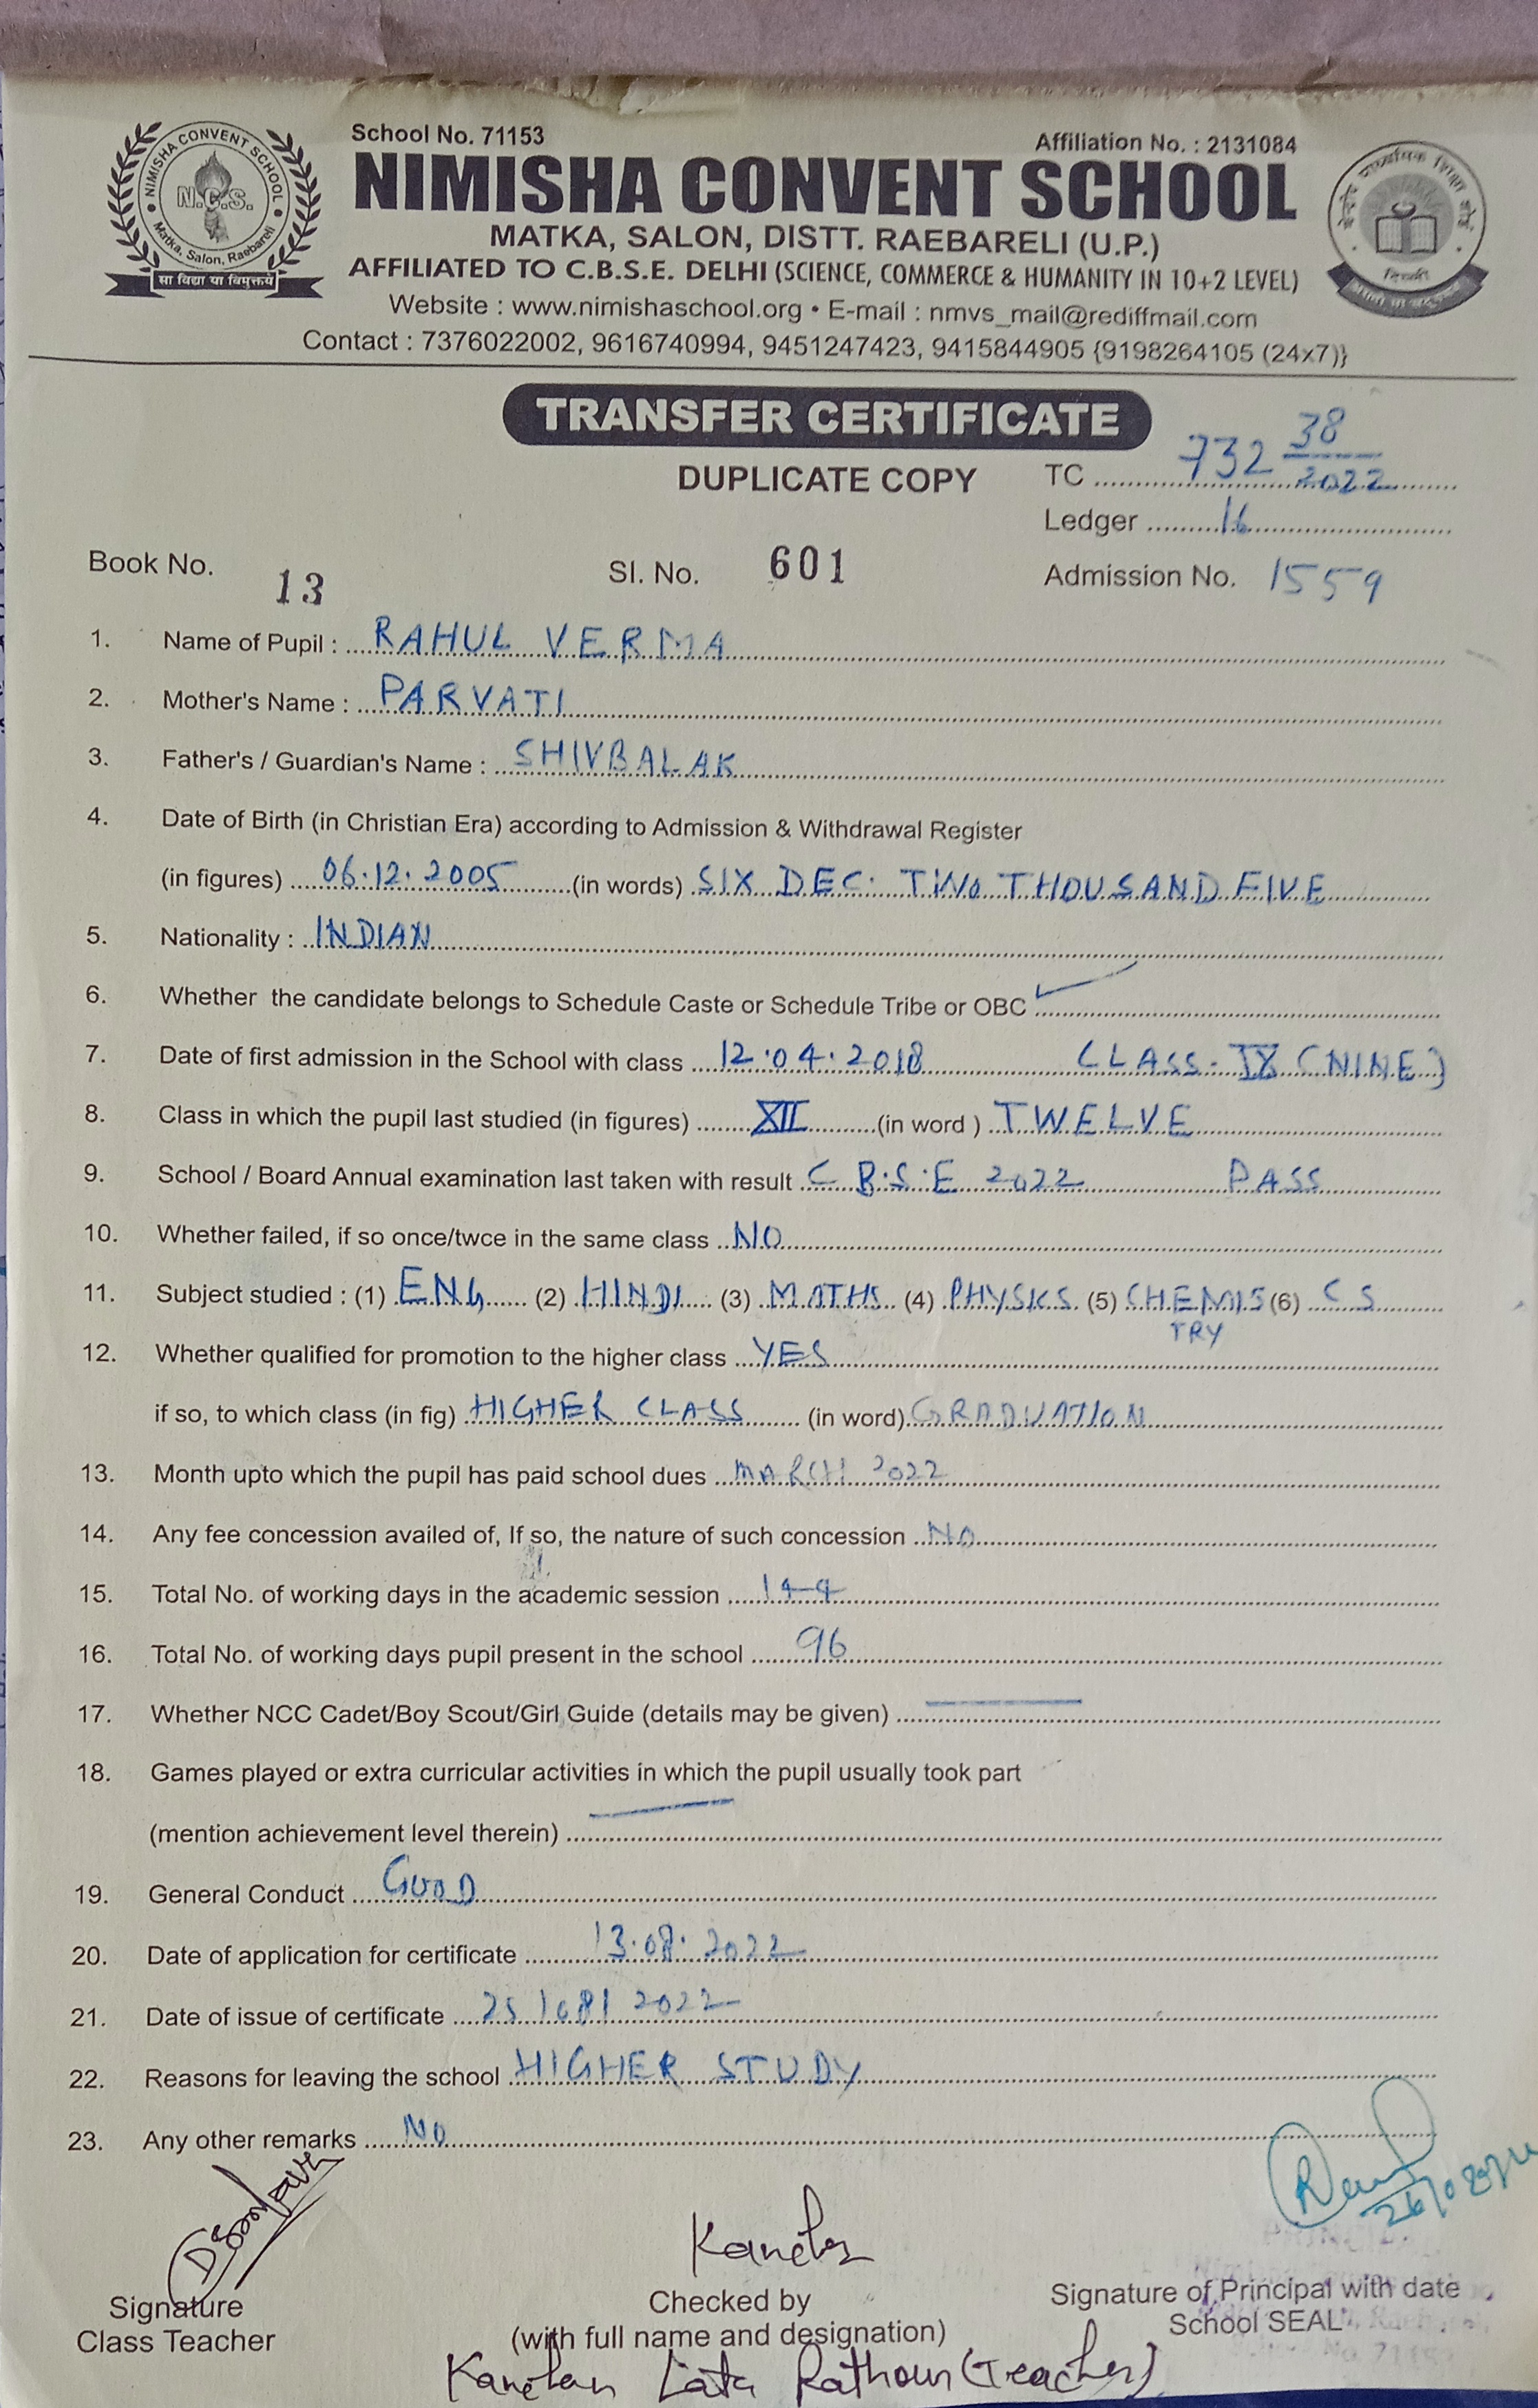 School No. 71153
Affiliation No. : 2131084
NIMISHA CONVENT SCHOOL
N.C.S.
Matka, Salon, Raebareli
सा विद्या या विमुक्तये
MATKA, SALON, DISTT. RAEBARELI (U.P.)
AFFILIATED TO C.B.S.E. DELHI (SCIENCE, COMMERCE & HUMANITY IN 10+2 LEVEL)
Website : www.nimishaschool.org • E-mail : nmvs_mail@rediffmail.com
Contact : 7376022002, 9616740994, 9451247423, 9415844905 {9198264105 (24x7)}
TRANSFER CERTIFICATE
DUPLICATE COPY TC 732 38/2022
Ledger 16
Book No. 13 Sl. No. 601 Admission No. 1559
1. Name of Pupil : RAHUL VERMA
2. Mother's Name : PARVATI
3. Father's / Guardian's Name : SHIVBALAK
4. Date of Birth (in Christian Era) according to Admission & Withdrawal Register
(in figures) 06.12.2005 (in words) SIX DEC. TWO THOUSAND FIVE
5. Nationality : INDIAN
6. Whether the candidate belongs to Schedule Caste or Schedule Tribe or OBC
7. Date of first admission in the School with class 12.04.2018 CLASS-IX (NINE)
8. Class in which the pupil last studied (in figures) XII (in word ) TWELVE
9. School / Board Annual examination last taken with result C B.S.E 2022 PASS
10. Whether failed, if so once/twce in the same class NO
11. Subject studied : (1) ENG (2) HINDI (3) MATHS (4) PHYSICS (5) CHEMIS (6) CS
TRY
12. Whether qualified for promotion to the higher class YES
if so, to which class (in fig) HIGHER CLASS (in word) GRADUATION
13. Month upto which the pupil has paid school dues MARCH 2022
14. Any fee concession availed of, If so, the nature of such concession NO
15. Total No. of working days in the academic session 144
16. Total No. of working days pupil present in the school 96
17. Whether NCC Cadet/Boy Scout/Girl Guide (details may be given)
18. Games played or extra curricular activities in which the pupil usually took part
(mention achievement level therein)
19. General Conduct GOOD
20. Date of application for certificate 13.08.2022
21. Date of issue of certificate 25/08/2022
22. Reasons for leaving the school HIGHER STUDY
23. Any other remarks NO
Signature
Class Teacher
Checked by
(with full name and designation)
Kanchan Lata Rathour (Teacher)
Signature of Principal with date
School SEAL